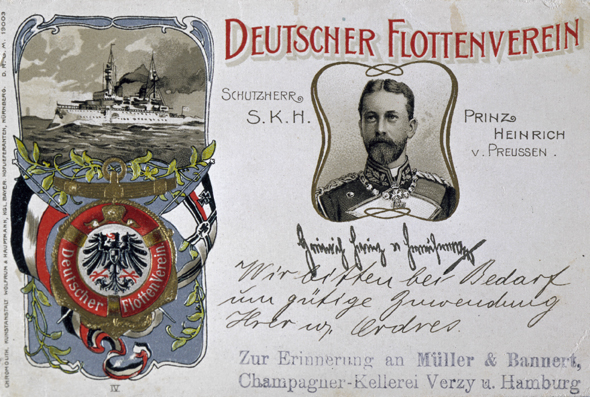 DEUTSCHER FLOTTENVEREIN
SCHUTZHERR
S.K.H.
PRINZ
HEINRICH
V. PREUSSEN.
Deutscher Flottenverein
Heinrich Prinz v Preussen
Wir bitten bei Bedarf
um gütige Zuwendung
Ihrer w. Ordres.
Zur Erinnerung an Müller & Bannert,
Champagner-Kellerei Verzy u. Hamburg
IV
KUNSTANSTALT WOLFRUM & HAUPTMANN, KGL. BAYER. HOFLIEFERANTEN, NÜRNBERG. D. R. G. M. 19003